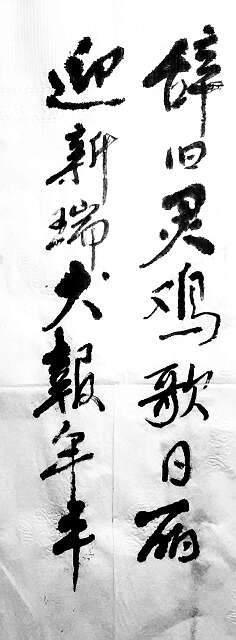 辞旧灵鸡歌日丽
迎新瑞犬報年丰